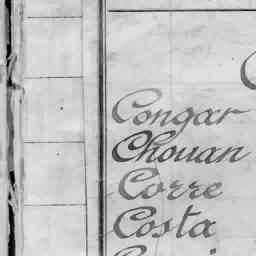 Congar
Chouan
Corre
Costa